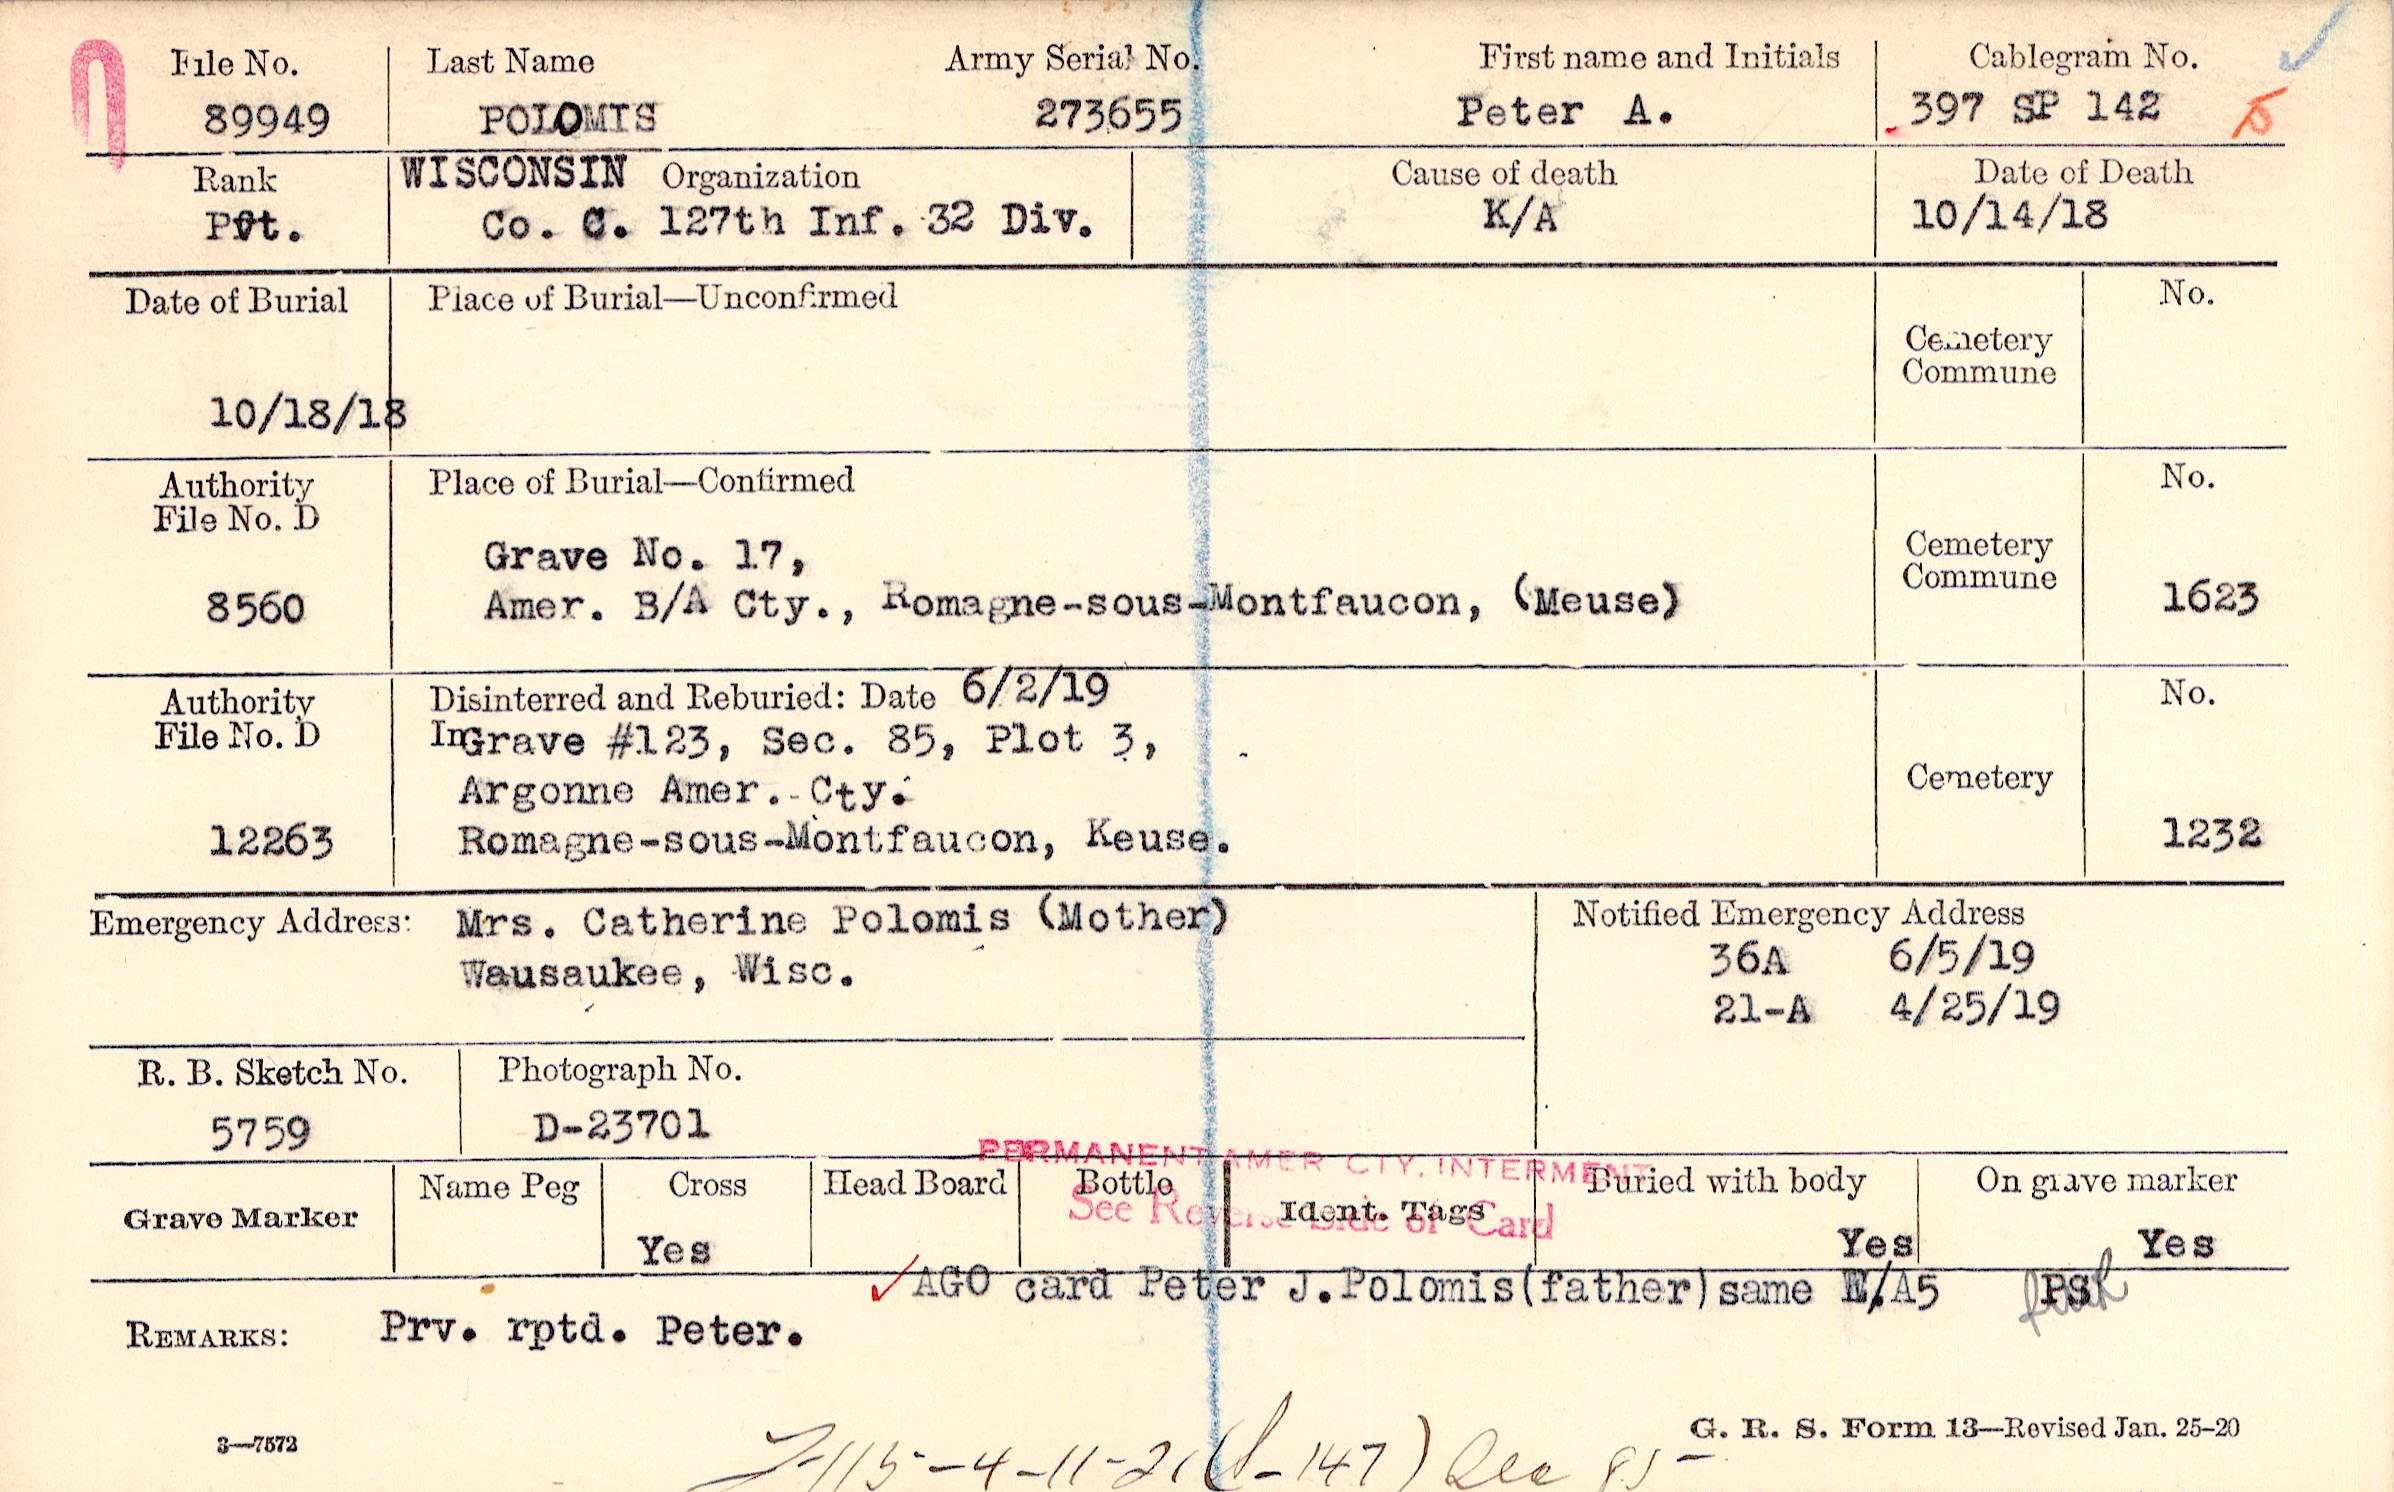 File No. Last Name Army Serial No. First name and Initials Cablegram No.
89949 POLOMIS 273655 Peter A. 397 SP 142
Rank WISCONSIN Organization Cause of death Date of Death
Pvt. Co. C. 127th Inf. 32 Div. K/A 10/14/18
Date of Burial Place of Burial—Unconfirmed No.
Cemetery
Commune
10/18/18
Authority Place of Burial—Confirmed No.
File No. D
Grave No. 17, Cemetery
Commune
8560 Amer. B/A Cty., Romagne-sous-Montfaucon, (Meuse) 1623
Authority Disinterred and Reburied: Date 6/2/19 No.
File No. D In Grave #123, Sec. 85, Plot 3,
Argonne Amer. Cty. Cemetery
12263 Romagne-sous-Montfaucon, Keuse. 1232
Emergency Address: Mrs. Catherine Polomis (Mother) Notified Emergency Address
Wausaukee, Wisc. 36A 6/5/19
21-A 4/25/19
R. B. Sketch No. Photograph No.
5759 D-23701
PERMANENT AMER CTY. INTERMENT
Name Peg Cross Head Board Bottle Buried with body On grave marker
See Reverse Side of Card
Grave Marker Ident. Tags
Yes Yes Yes
AGO card Peter J.Polomis(father)same E/A5 PS
REMARKS: Prv. rptd. Peter.
G. R. S. Form 13—Revised Jan. 25-20
3—7572
4-11-21 147)